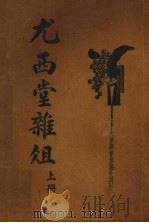 尤西堂雜俎
上冊